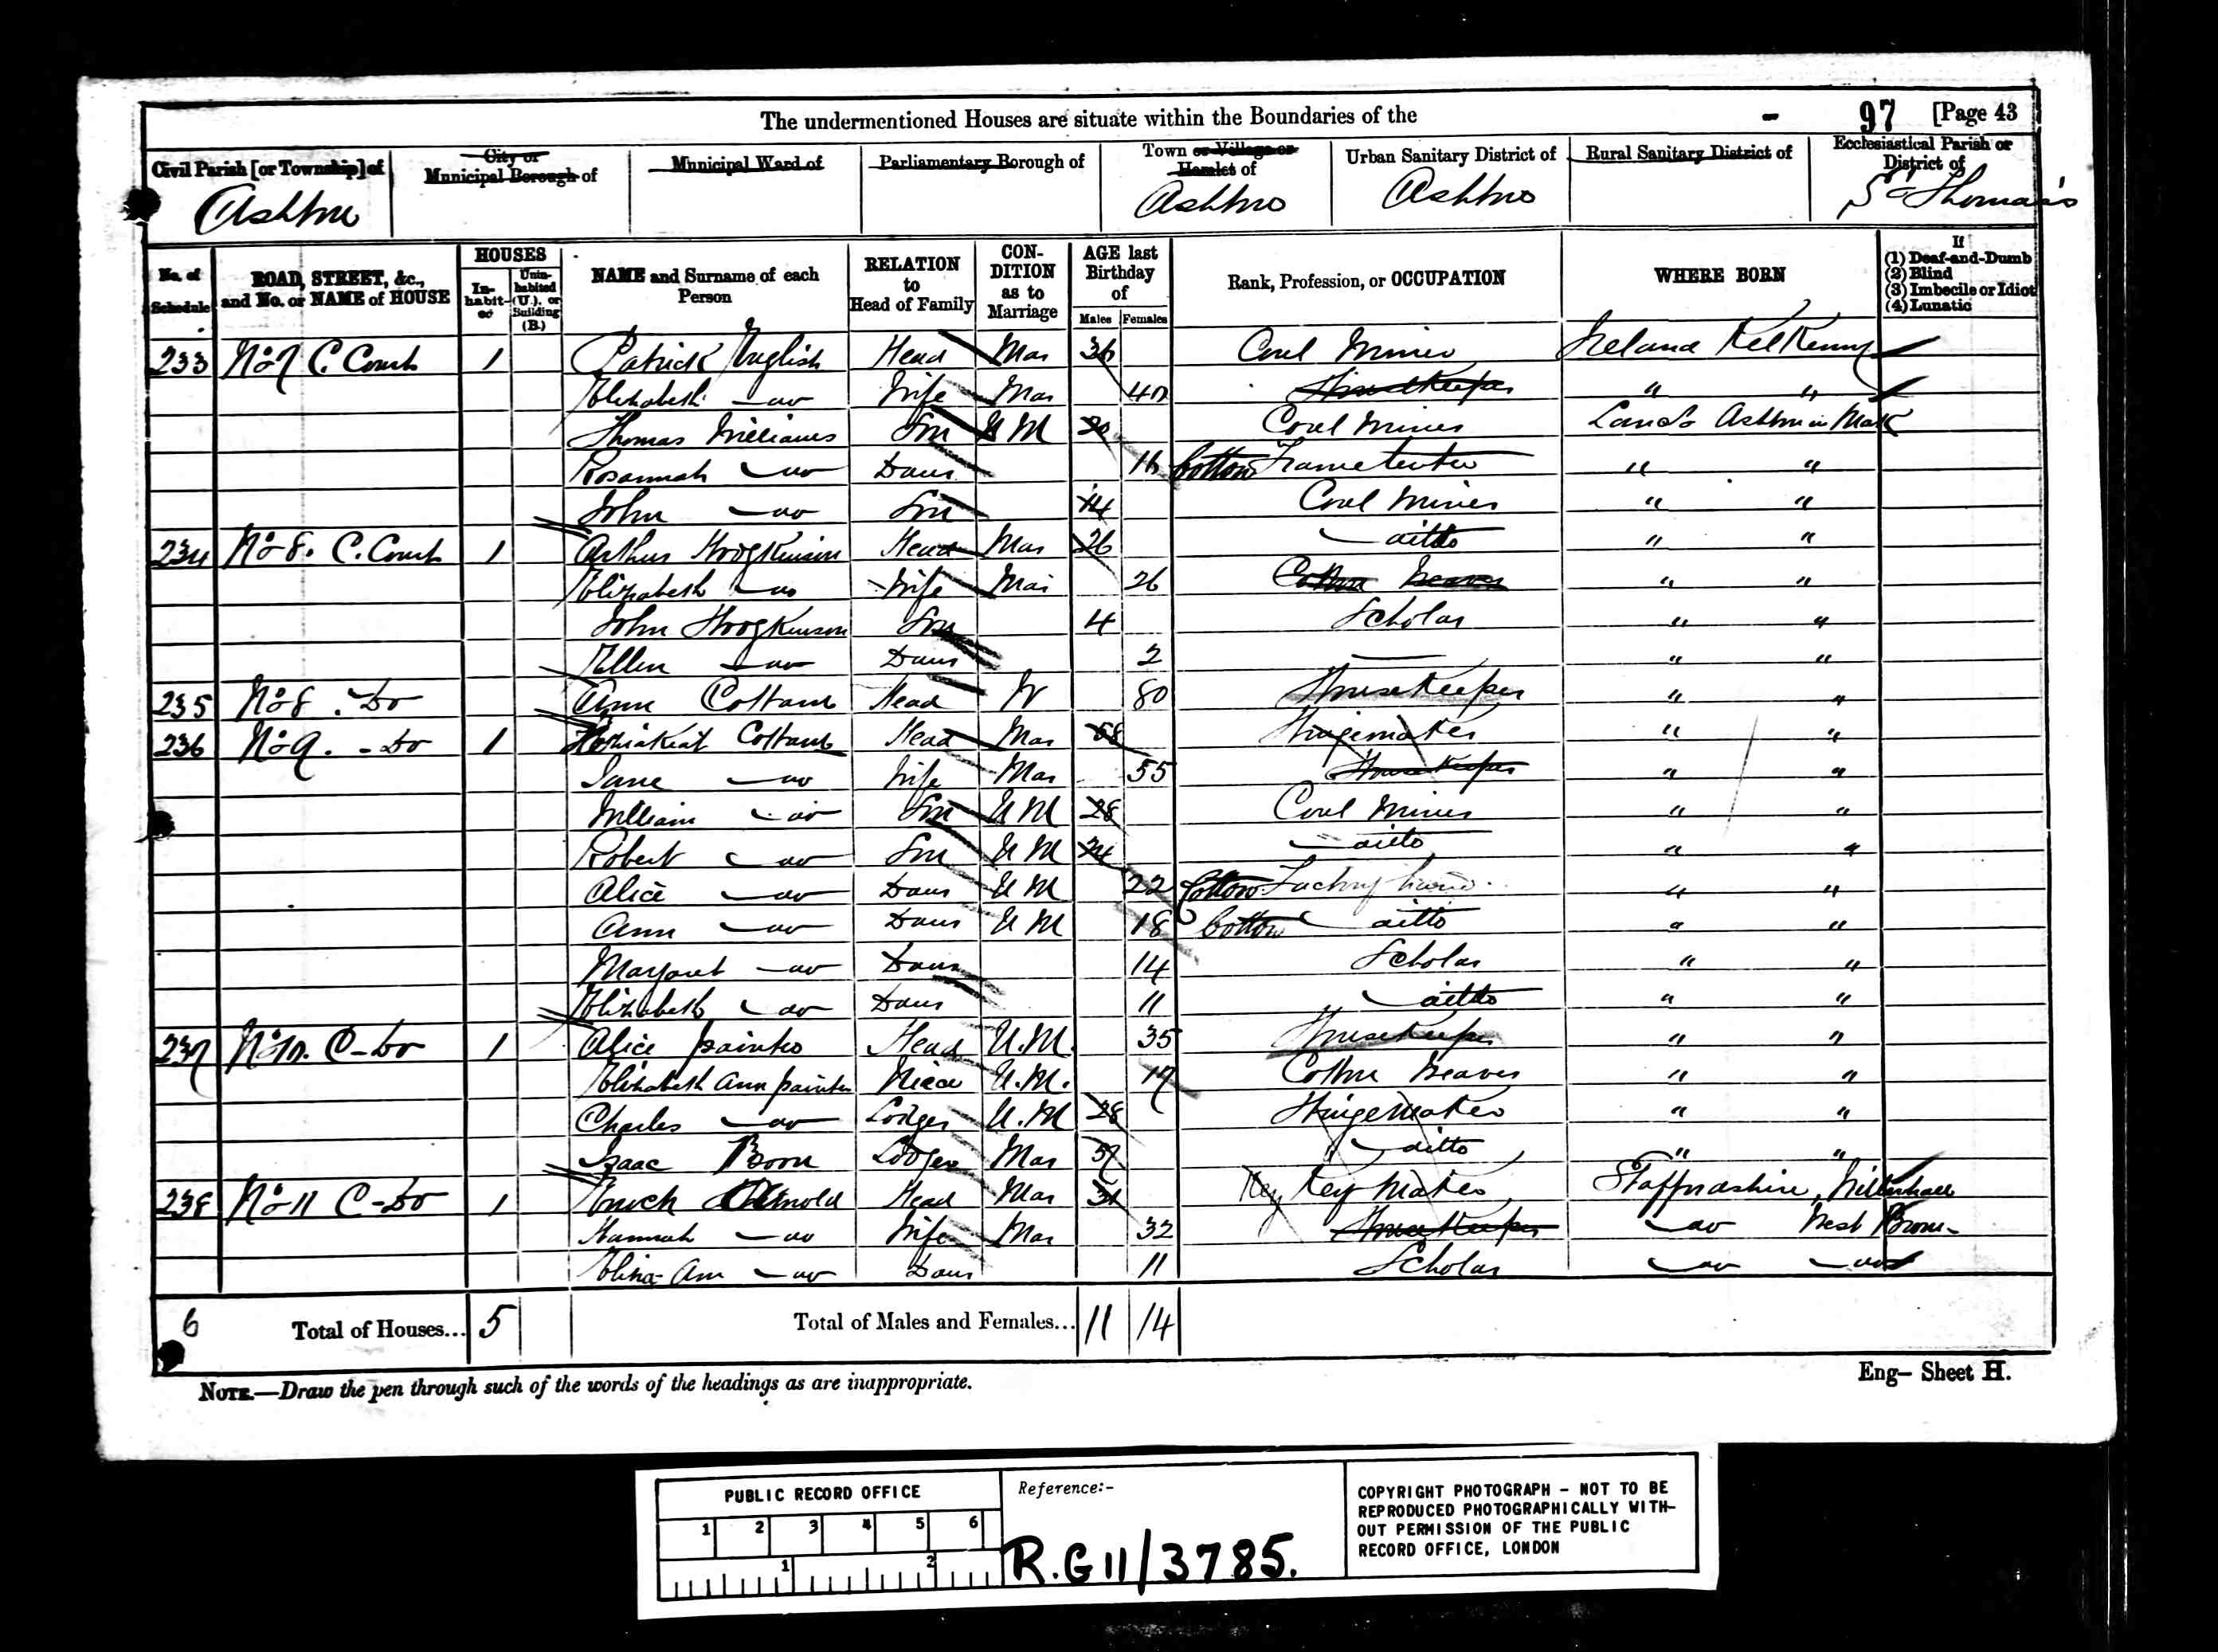 The undermentioned Houses are situate within the Boundaries of the - 97 [Page 43
Civil Parish [or Township] of City or Municipal Borough of Municipal Ward of Parliamentary Borough of Town or Village or Hamlet of Urban Sanitary District of Rural Sanitary District of Ecclesiastical Parish or District of
Ashton Ashton Ashton St Thomas's
No. of Schedule ROAD, STREET, &c., and No. or NAME of HOUSE HOUSES Inhabited Uninhabited (U.), or Building (B.) NAME and Surname of each Person RELATION to Head of Family CONDITION as to Marriage AGE last Birthday of Males Females Rank, Profession, or OCCUPATION WHERE BORN If (1) Deaf-and-Dumb (2) Blind (3) Imbecile or Idiot (4) Lunatic
233 No 7 C. Court 1 Patrick English Head Mar 36 Coal Miner Ireland Kelkenny
Elizabeth do Wife Mar 40 Housekeeper " "
Thomas Williams Son UM 20 Coal Miner Ashton in Mak
Rosannah do Daur 16 Cotton Frame tenter " "
John do Son 14 Coal Miner " "
234 No 8. C. Court 1 Arthur Hodgkinson Head Mar 26 ditto " "
Elizabeth do Wife Mar 26 Cotton Weaver " "
John Hodgkinson Son 4 Scholar " "
Ellen do Daur 2 — " "
235 No 8. Do Ann Cottam Head W 80 Housekeeper " "
236 No 9. - Do 1 Cottam Head Mar 58 Hingemaker " "
Jane do Wife Mar 55 Housekeeper " "
William do Son UM 28 Coal Miner " "
Robert do Son UM 24 ditto " "
Alice do Daur UM 22 Cotton Factory hand " "
Ann do Daur UM 18 Cotton ditto " "
Margaret do Daur 14 Scholar " "
Elizabeth do Daur 11 ditto " "
237 No 10. C - Do 1 Alice painter Head U.M. 35 Housekeeper " "
Elizabeth Ann painter Niece U.M. 17 Cotton Weaver " "
Charles do Lodger U.M 28 Hinge Maker " "
Isaac Boon Lodger Mar ditto " "
238 No 11 C - Do 1 Enoch Arnold Head Mar 31 Key Key Maker Staffordshire, Willenhall
Hannah do Wife Mar 32 Housekeeper do West Brom-
Eliza Ann do Daur 11 Scholar do do
6 Total of Houses... 5 Total of Males and Females... 11 14
NOTE.—Draw the pen through such of the words of the headings as are inappropriate.
Eng– Sheet H.
PUBLIC RECORD OFFICE
1 2 3 4 5 6
1 2
Reference:-
R.G 11/3785.
COPYRIGHT PHOTOGRAPH – NOT TO BE
REPRODUCED PHOTOGRAPHICALLY WITH-
OUT PERMISSION OF THE PUBLIC
RECORD OFFICE, LONDON